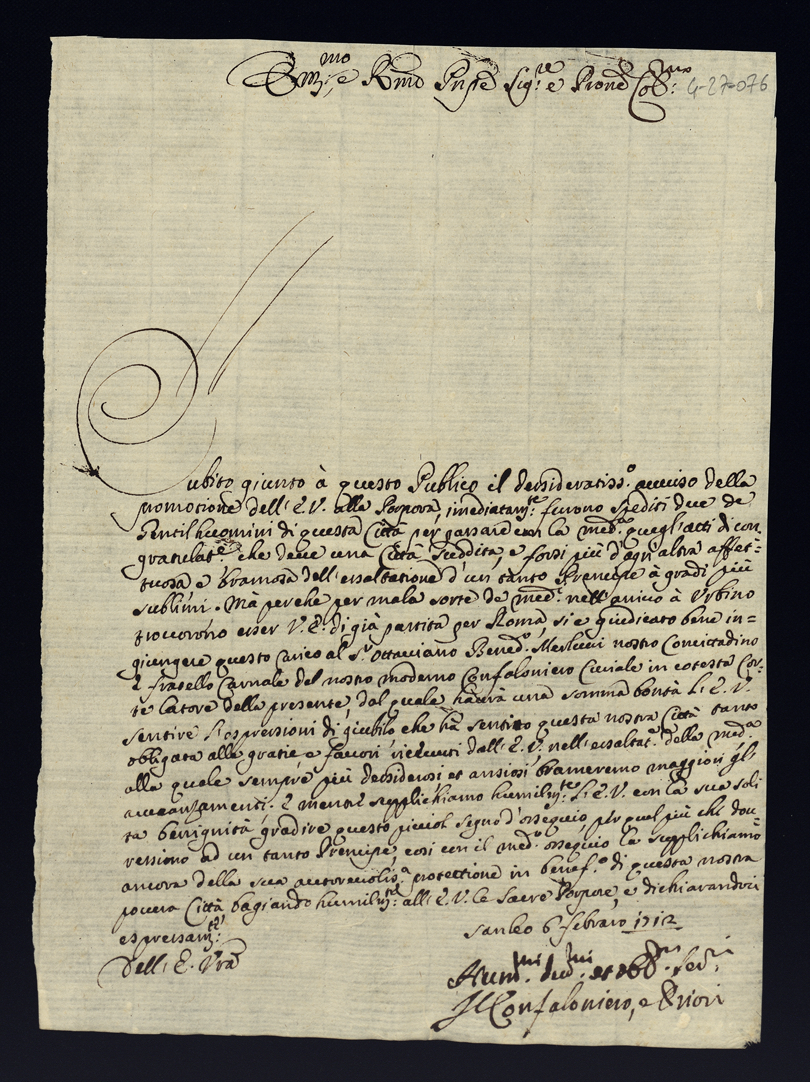 Em.mo e Rmo Pnpe Sig.re e Prone Col.mo 4-27-076
Subito giunto à questo Publico il dessideratiss.o auuiso della
promotione dell'E.V. alla Porpora, imediatam.te furono spediti due de
Gentilhuomini di questa Città per passare con la med.a quegl'atti di con,
gratulat.e che deue una Città suddita, e forsi più d'ogn'altra affet=
tuosa e bramosa dell'essaltatione d'un tanto Prencipe à gradi più
sublimi. Mà perche per mala sorte de med.i nell'arriuo à Vrbino
trouorono esser V.E. di già partita per Roma, si è giudicato bene in=
giungere questo carico al S.r Ottauiano Bened.o Merlucci nostro Concittadino
e fratello Carnale del nostro moderno Confaloniero Ciuiale in cotesta Cor=
te latore della presente, dal quale haurà una somma bontà L'E.V.
sentire l'espressioni di giubilo che hà sentito questa nostra Città tanto
obligata alle gratie e fauori riceuuti dall'E.V. nell'essaltat.e della med.a
alla quale sempre più dessiderosi et ansiosi brameremo maggiori gl'
auuanzamenti. E mentre supplichiamo humilm.te L'E.V. con la sua soli
ta benignità gradire questo picciol segno d'ossequio, per quel più che dou=
ressimo ad un tanto Prencipe, cosi con il med.o ossequio la supplichiamo
ancora della sua autoreuoliss.a protettione in benef.o di questa nostra
pouera Città bagiando humilm.te all'E.V. le Sacre Porpore, e dichiarandoci
espressam.te
Dell'E. Vra
Sanleo 6 febraro 1712
Humil.mi Deu.mi et obb.mi Ser.i
Il Confaloniero, e Priori